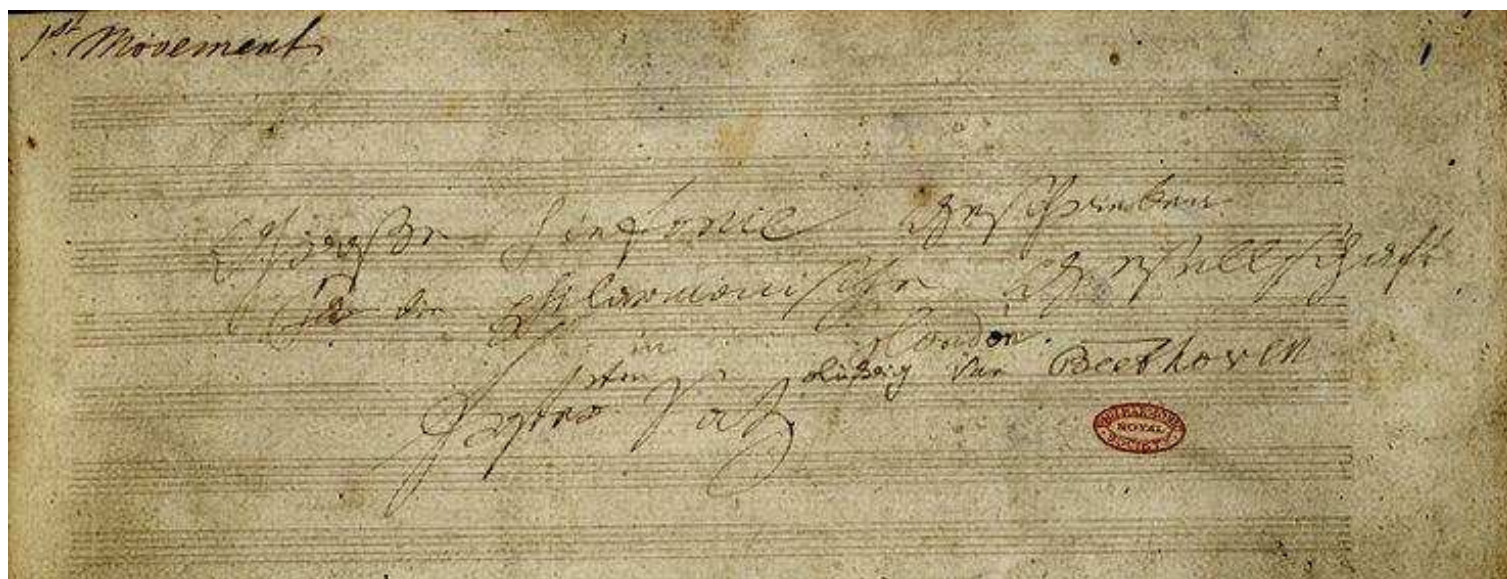 1st. Movement
1
Große Sinfonie geschrieben
für die Philarmonische Gesellschaft
in London.
von Ludwig van Beethoven
erster Satz
PHILHARMONIC
ROYAL
SOCIETY